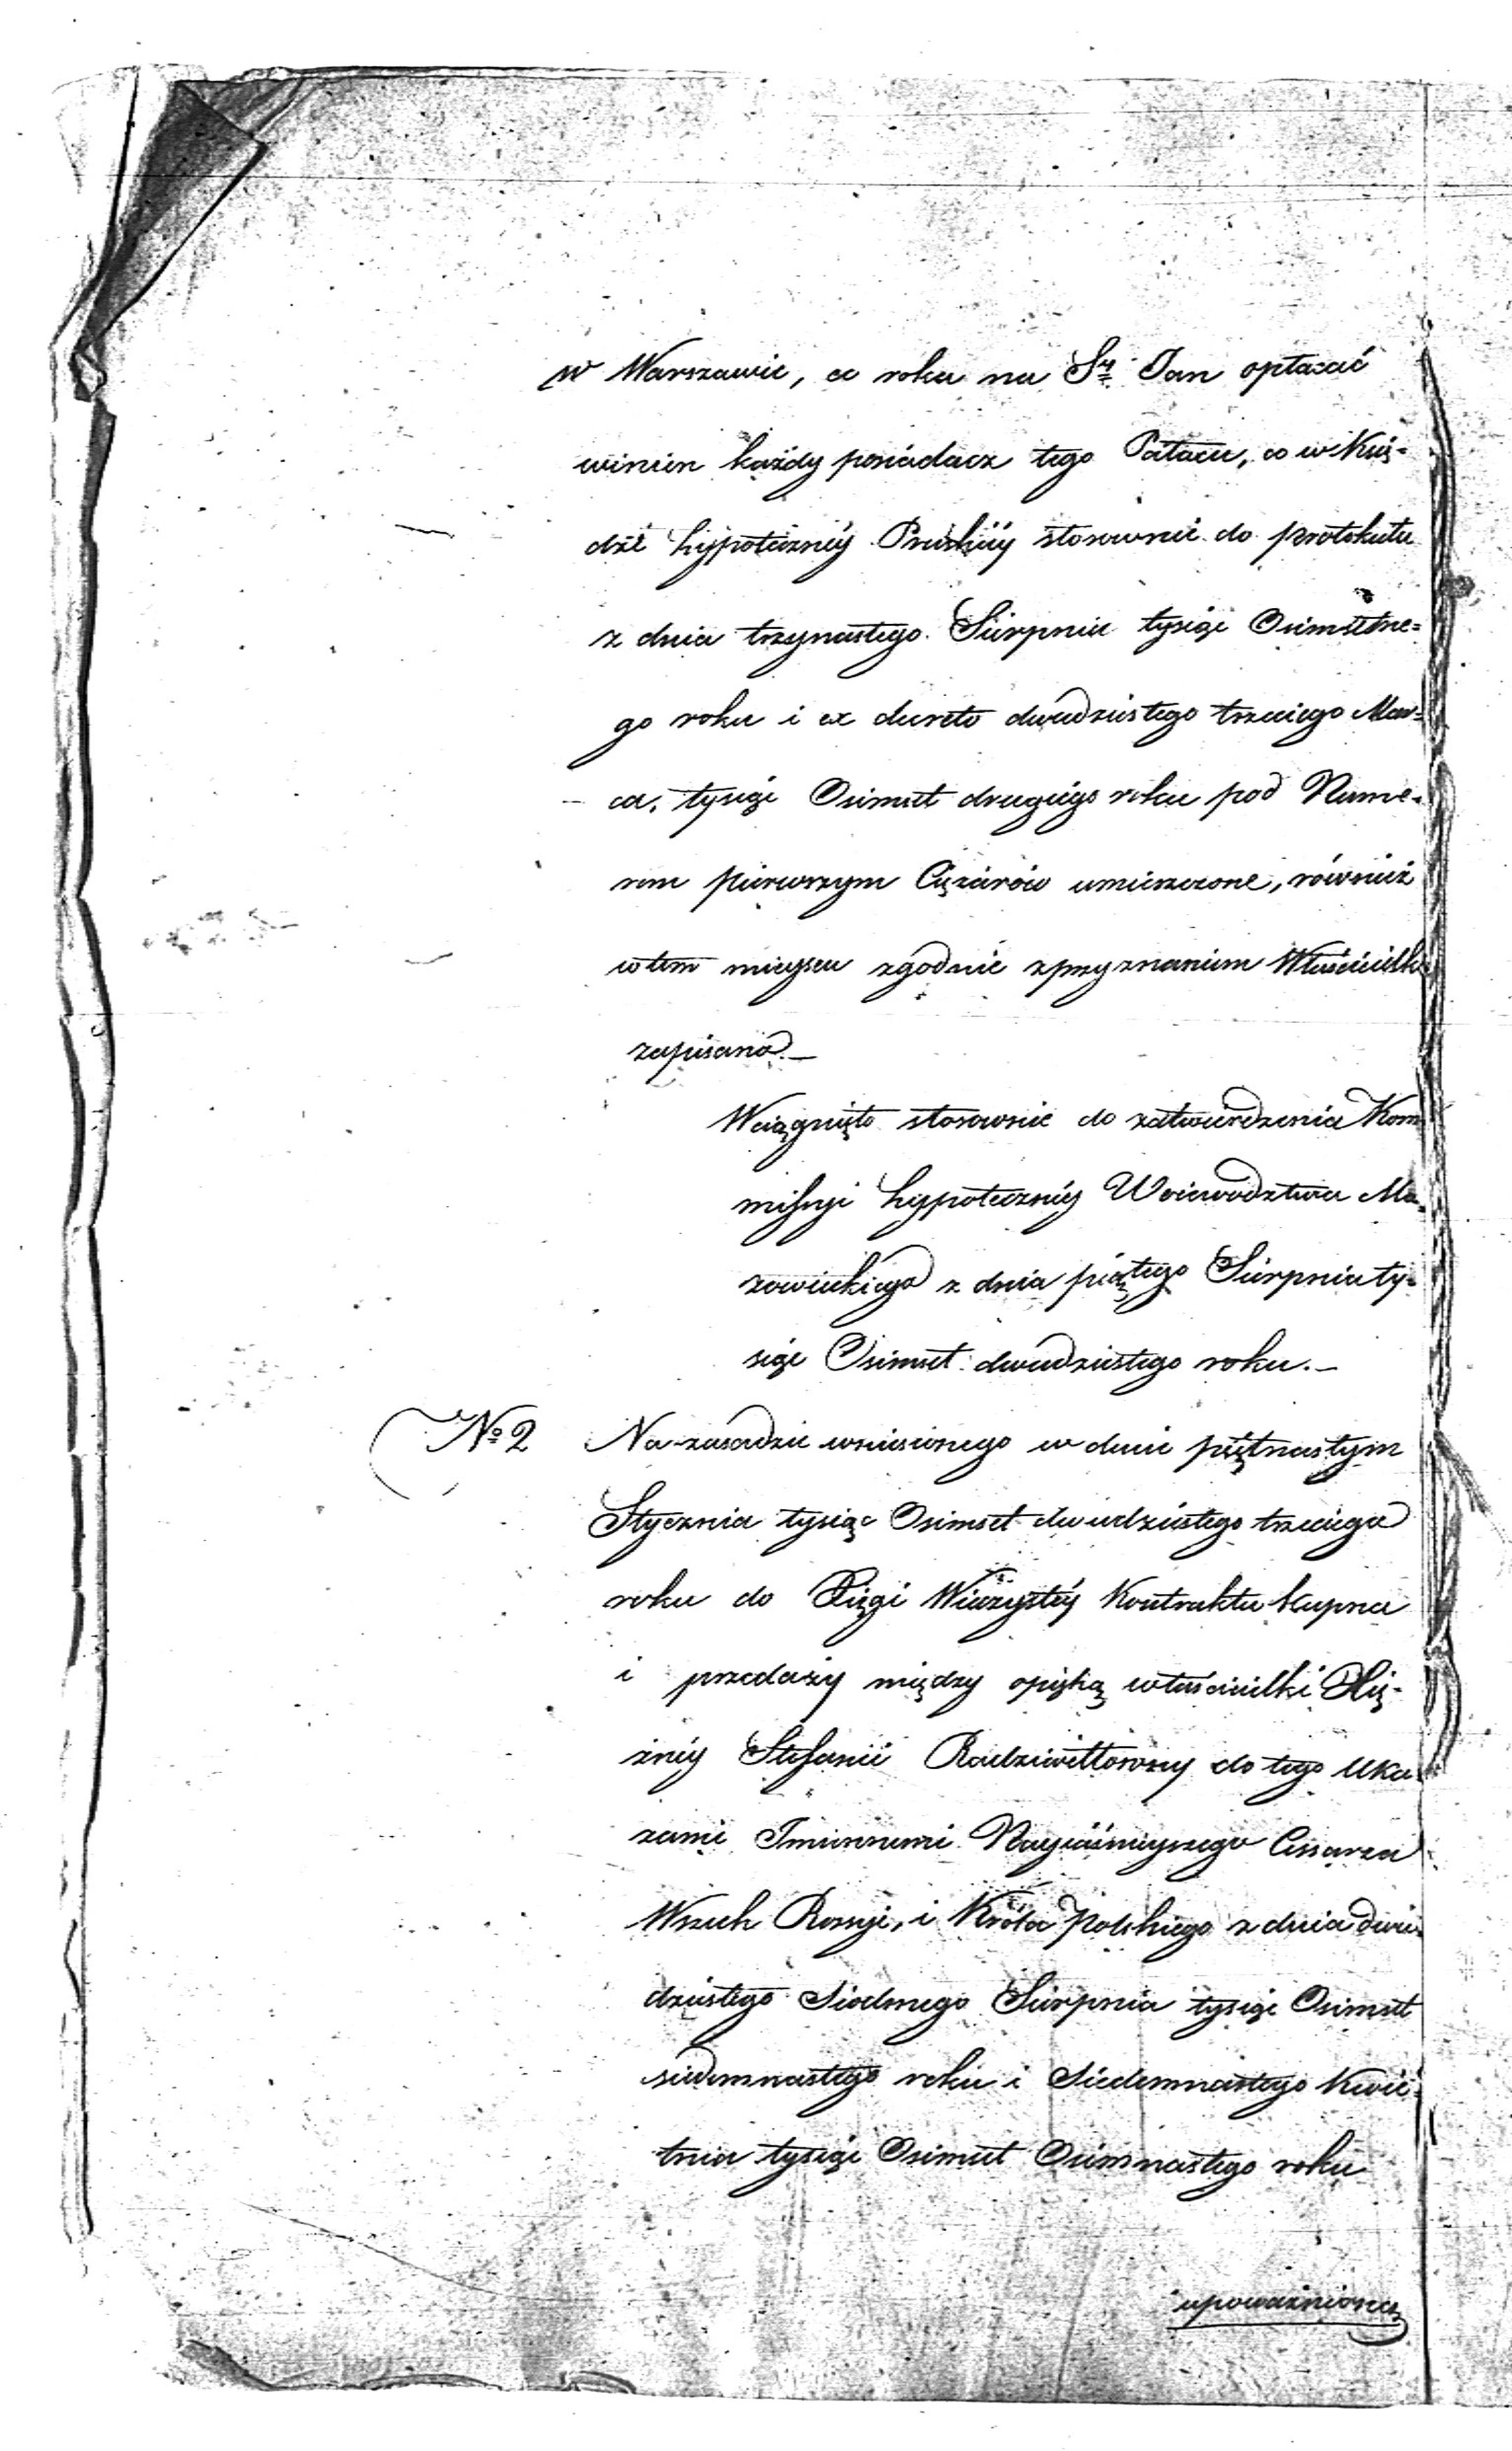 w Warszawie, co roku na Sty Jan opłacać
winien każdy posiadacz tego Pałacu, co w Xię-
dze hypoteczney Pruskiey stosownie do protokułu
z dnia trzynastego Sierpnia tysiąc Osimsetne=
go roku i ex decreto dwudziestego trzeciego Mar=
ca, tysiąc Osimset drugiego roku pod Nume-
rem pierwszym Ciężarów umieszczone, również
w tem mieyscu zgodnie z przyznaniem Właścicielki
zapisano.—
Wciągnięto stosownie do zatwierdzenia Kom
missyi hypoteczney Woiewodztwa Ma=
zowieckiego z dnia piątego Sierpnia ty=
siąc Osimset dwudziestego roku.—
№ 2 Na zasadzie wniesionego w dniu piętnastym
Stycznia tysiąc Osimset dwudziestego trzeciego
roku do Xięgi Wieczystéy Kontraktu kupna
i przedaży między opieką właścicielki Xię-
żnéy Stefanii Radziwiłłowny do tego Uka-
zami Imiennemi Nayiaśnieyszego Cessarza
Wszech Rossyi, i Króla Polskiego z dnia dwu-
dziestego Siodmego Sierpnia tysiąc Osimset
siedmnastego roku i Siedemnastego Kwie-
tnia tysiąc Osimset Osimnastego roku
upoważnioną